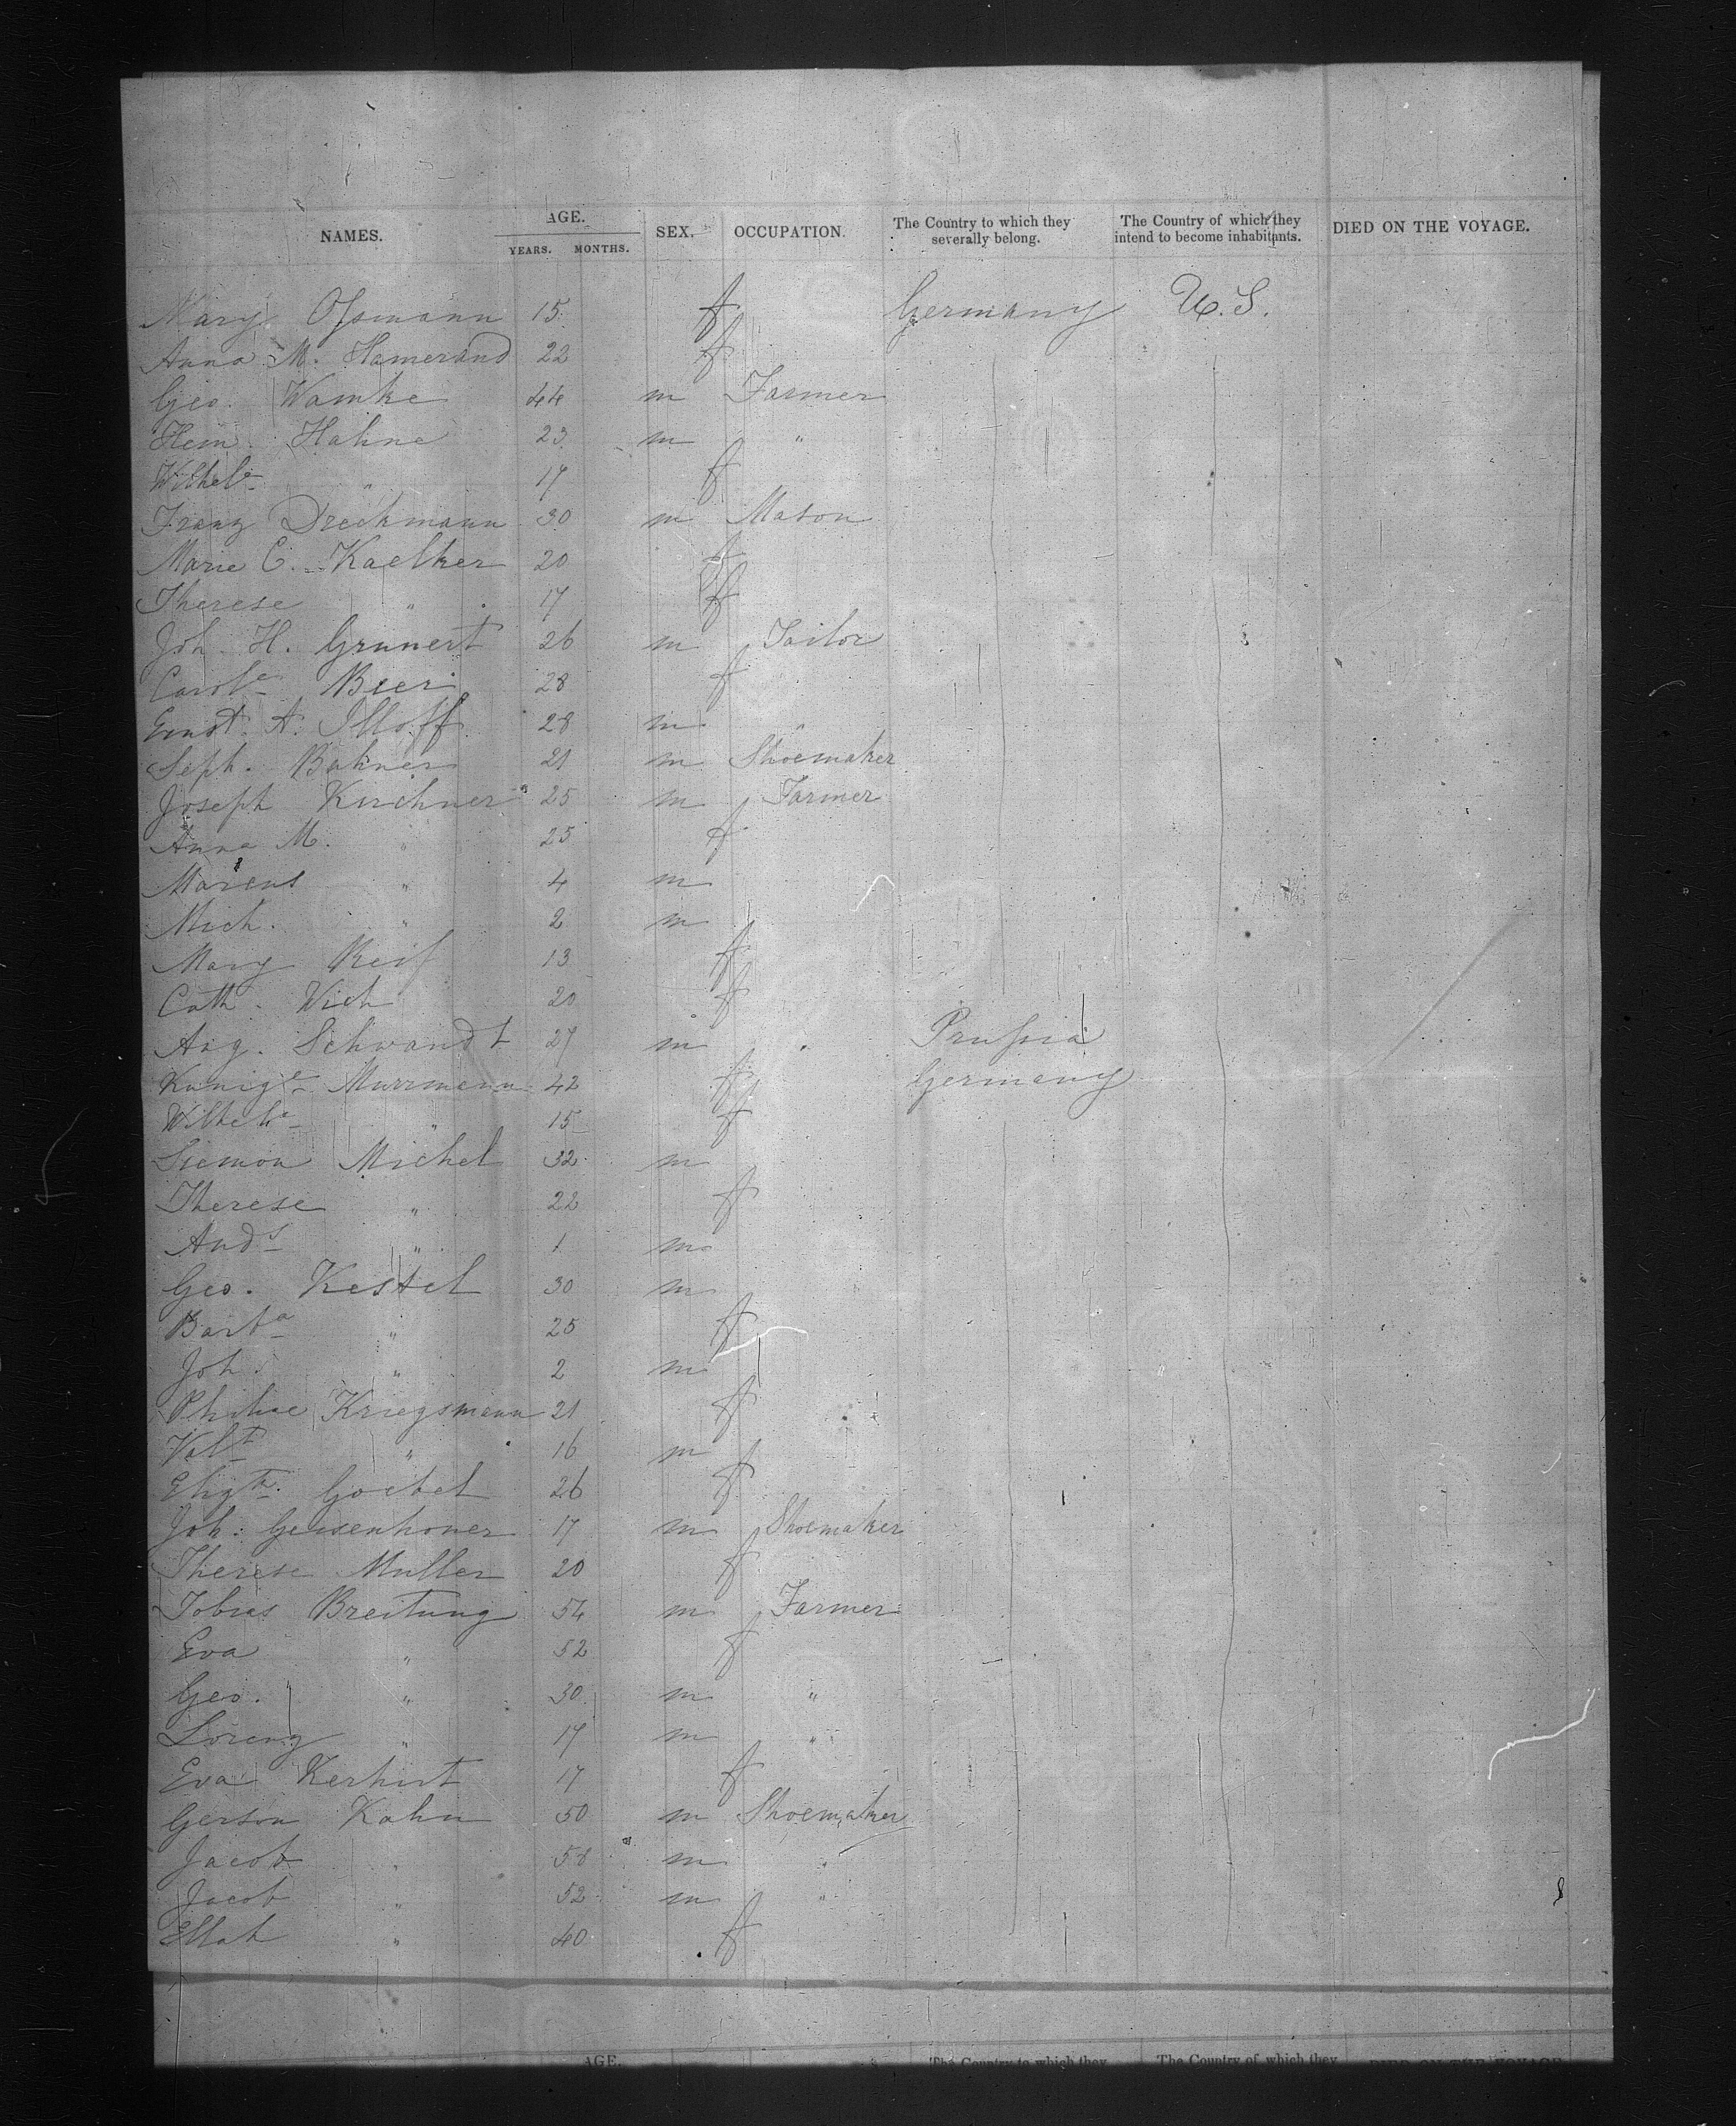 NAMES. AGE. YEARS. MONTHS. SEX. OCCUPATION. The Country to which they severally belong. The Country of which they intend to become inhabitants. DIED ON THE VOYAGE.
Mary Ossmann 15 f Germany U.S.
Anna M. Hamerand 22 f
Geo. Wamke 44 m Farmer
Hein. Hahne 23 m "
Wilhele " 17 f
Franz Dreckmann 30 m Mason
Marie C. Kaelker 20 f
Therese " 17 f
Joh. H. Grunert 26 m Tailor
Carole Beer 28 f
Ernst. A. Illoff 28 m "
Seph. Bahner 21 m Shoemaker
Joseph Kirchner 25 m Farmer
Anna M. " 25 f
Marcus " 4 m
Mich. " 2 m
Mary Reif 13 f
Cath. Wich 20 f
Aug. Schwandt 27 m " Prussia
Kunige Murrmann 42 f Germany
Wilhele " 15 f
Siemon Michel 32 m
Therese " 22 f
Ands " 1 m
Geo. Kestel 30 m
Barba " 25 f
Joh. " 2 m
Kriegsmann 21 f
Valt " 16 m
Goebel 26 f
Joh. Geisenhoner 17 m Shoemaker
Therese Muller 20 f
Tobias Breitung 54 m Farmer
Eva " 52 f
Geo. " 30 m "
Lorenz " 17 m "
Eva Kerhirt 17 f
Gerson Kahn 50 m Shoemaker
Jacob " 58 m "
Jacob " 52 m "
Ellah " 40 f
AGE. The Country to which they The Country of which they DIED ON THE VOYAGE